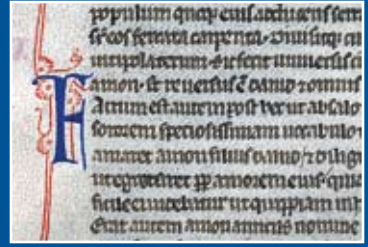 populum quoqꝫ eius adducens serra
sr̄ eos ferrata carpenta. Diuisitqꝫ cu
et fecit uniuersis ci
amon. et reuersus ē dauid ⁊ omnis
FActum est autem post hec ut absalo
sororem speciosissimam uocabulo
amaret amon filius dauid ⁊
ut egrotaret ꝓp amorem eius quia
ut quippiam inh
Erat autem amon amicus nomine